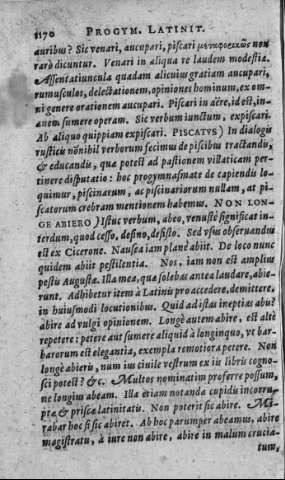 1170 PROGYM. LATINIT.
auribus? Sic venari, aucupari, piscari μεταφορικῶς non
rarò dicuntur. Venari in aliqua re laudem modestia.
Assentatiuncula quadam alicuius gratiam aucupari,
rumusculos, delectationem, opiniones hominum, ex om-
ni genere orationem aucupari. Piscari in aëre, id est, in-
anem sumere operam. Sic verbum iunctum, expiscari.
Ab aliquo quippiam expiscari. PISCATVS) In dialogis
rusticis nõnihil verborum fecimus de piscibus tractandis,
& educandis, qua potest ad pastionem villaticam per-
tinere disputatio: hoc progymnasmate de capiendis lo-
quimur, piscinarum, ac piscinariorum nullam, at pi-
scatorum crebram mentionem habemus. NON LON-
GE ABIERO) Istuc verbum, abeo, venustè significat in-
terdum, quod cesso, desino, desisto. Sed vsus obseruandus
est ex Cicerone. Nausea iam planè abiit. De loco nunc
quidem abiit pestilentia. Nos, iam non est amplius
pestis Augusta. Illa mea, qua solebas antea laudare, abie-
runt. Adhibetur item à Latinis pro accedere, demittere,
in huiusmodi locutionibus. Quid ad istas ineptias abis?
abire ad vulgi opinionem. Longè autem abire, est altè
repetere: petere aut sumere aliquid à longinquo, vt bar-
barorum est elegantia, exempla remotiora petere. Non
longè abieris, num ius ciuile vestrum ex iis libris cogno-
sci potest? &c. Multos nominatim proferre possum,
ne longius abeam. Illa etiam notanda cupidis incorru-
ptæ & priscæ latinitatis. Non poterit sic abire. Mi-
rabar hoc si sic abiret. Ab hoc parumper abeamus, abire
magistratu, à iure non abire, abire in malum crucia-
tum,